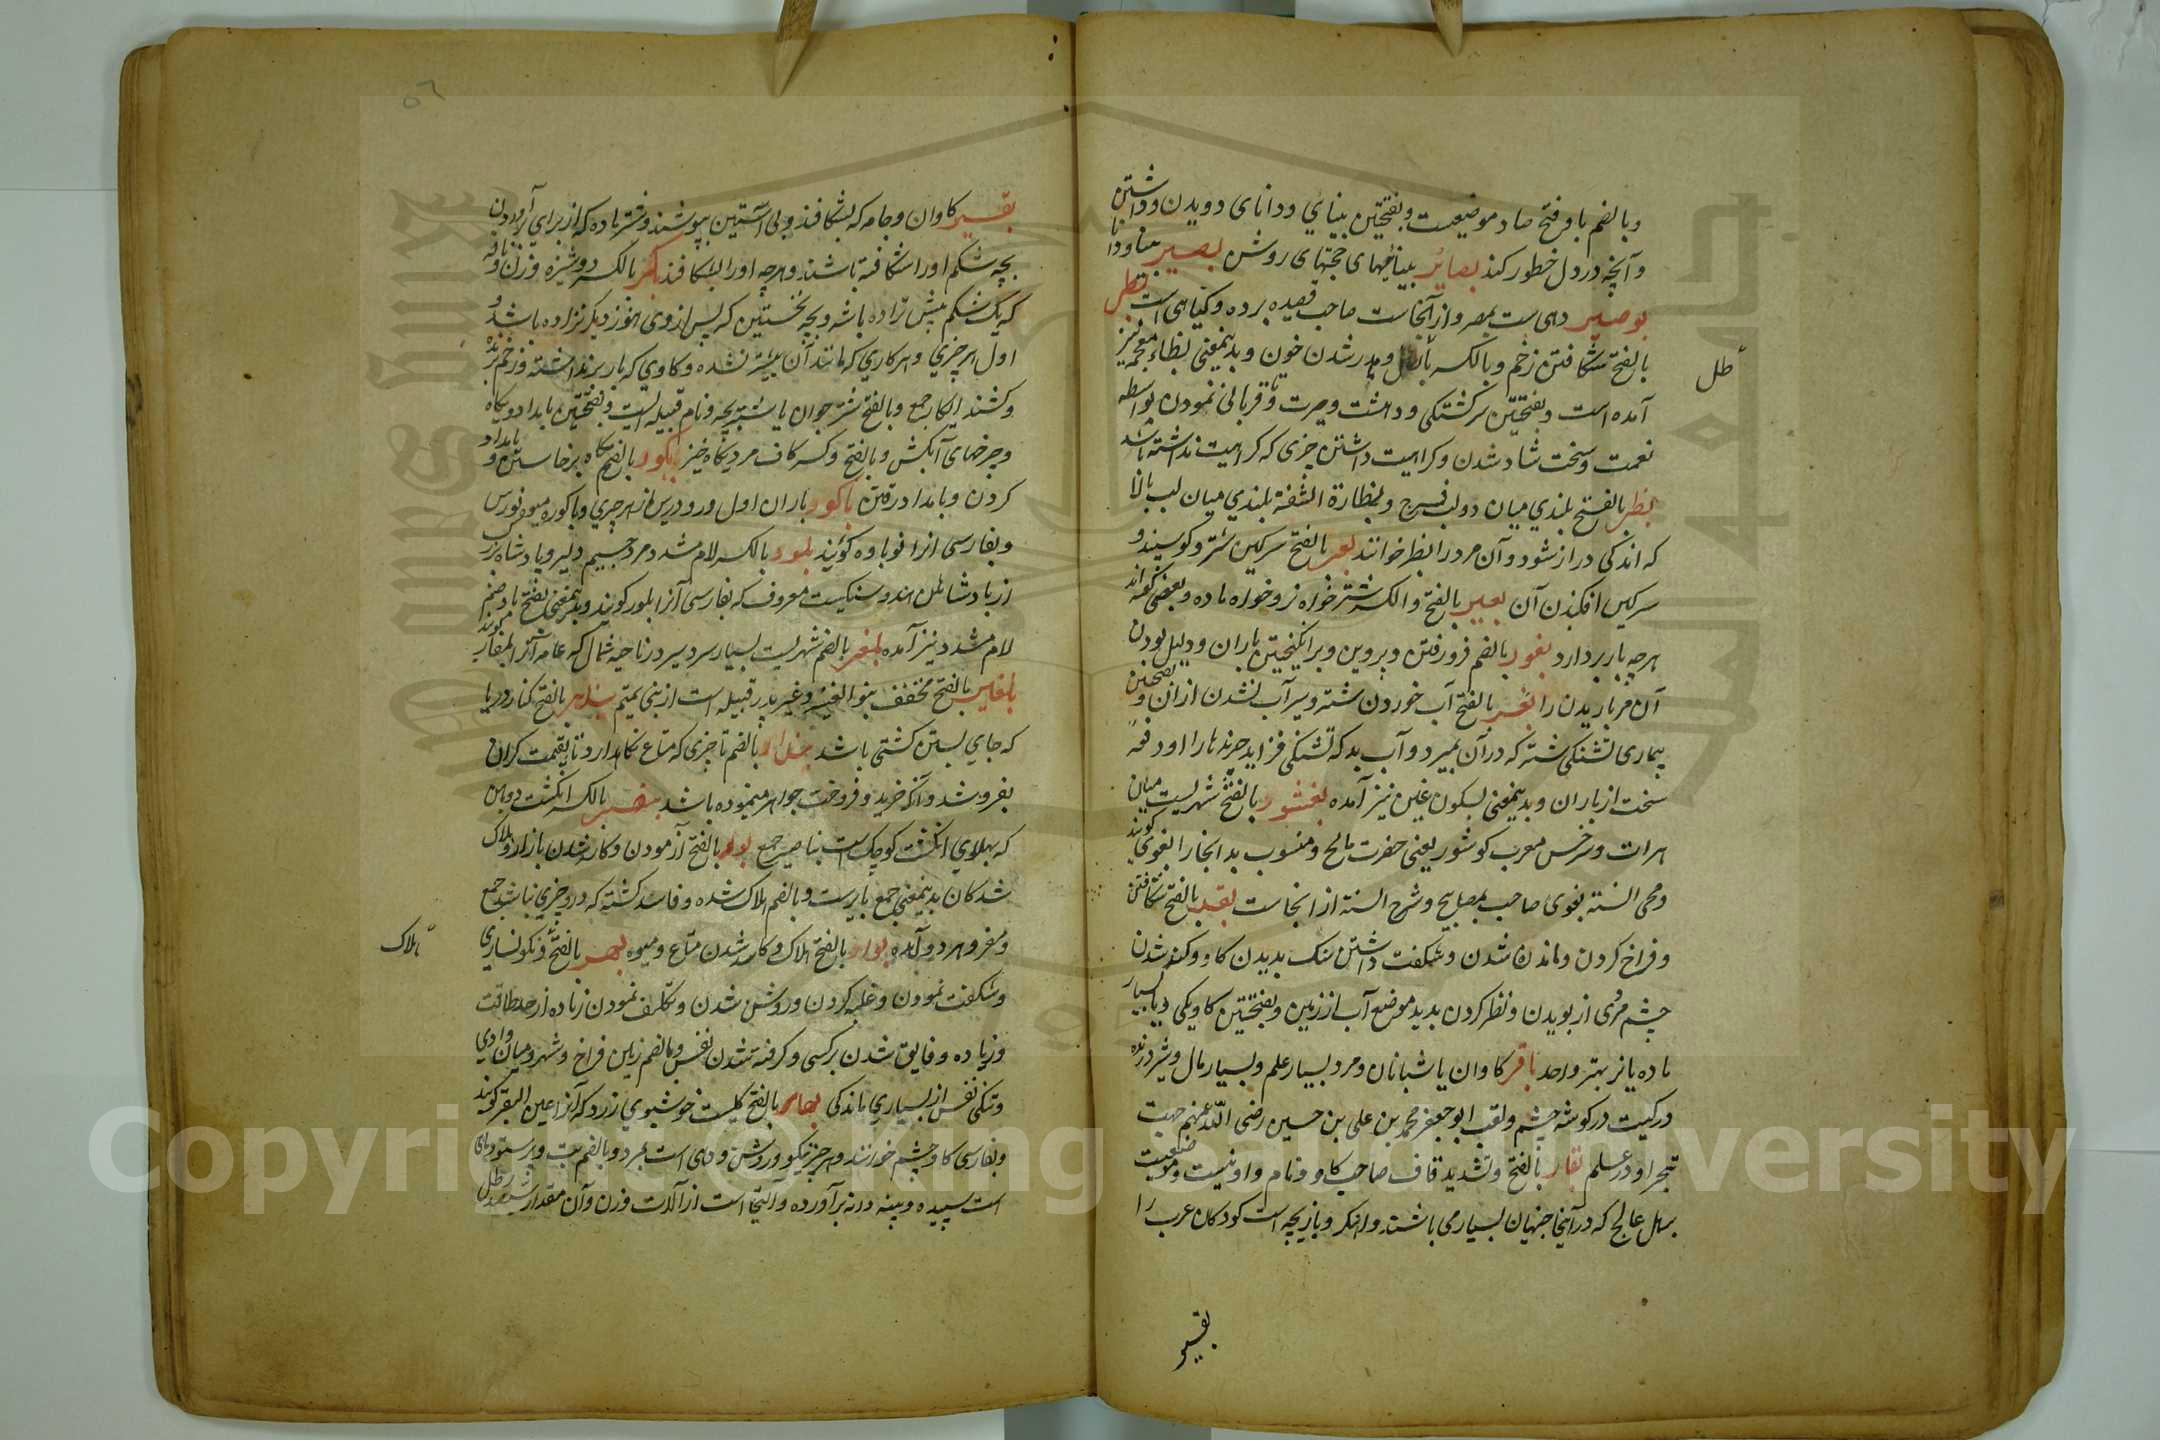 وبالضم با و فتح صاد موضعیست و بفتحتین بینایي و دانای و دیدن و داشتن
و آنچه در دل خطور کند بصائر بینائیهای حجتهای روشن بصیر بینا و دانا
بوصیر دهی ست بمصر و از آنجاست صاحب قصیده برده و کیاهی است بطر
بالفتح شکافتن زخم و بالکسر باطل و هدر شدن خون و بدینمعنی بظاء معجمه نیز
طل
آمده است و بفتحتین سرکشتکی و دهشت و حیرت و قربانی نمودن بواسطه
نعمت و سخت شاد شدن و کراهیت داشتن چیزی که کراهیت نداشته باشد
بظر بالفتح بلندي میان دو لب فرج و بظارة الشفة بلندي میان لب بالا
که اندکی دراز شود و آن مرد را ابظر خوانند بعر بالفتح سرکین شتر و کوسپند و
سرکین افکندن آن بعیر بالفتح و الکسر شتر خواه نر و خواه ماده و بعضی کفته اند
هرچه بار بردارد بغور بالضم فرو رفتن پروین و برانکیختن باران و دلیل بودن
آن مر باریدن را بغر بالفتح آب خوردن شتر و سیرآب نشدن از آن و بفتحتین
بیماری تشنکی شتر که در آن بمیرد و آب بد که تشنکی فزاید چرنده را و دفعه
سخت از باران و بدینمعنی بسکون غین نیز آمده بغشور بالفتح شهریست میان
هرات و سرخس معرب کوشور یعنی حفرت مالح و منسوب بد انجا را بغوي کویند
و محی السنه بغوی صاحب مصابیح و شرح السنه از انجاست بقر بالفتح شکافتن
و فراخ کردن و ماندن شدن و شکفت داشتن سک بدیدن کاو و کند شدن
چشم مردی از بویدن و نظر کردن بدید موضع آب از زمین و بفتحتین کاو یکی و یا بسیار
ماده یا نر بقر واحد باقر کاوان یا شبانان و مرد بسیار علم و بسیار مال و شیر درنده
در کیت در کوشه چشم و لقب ابو جعفر محمد بن علی بن حسین رضی الله عنهم جهت
تبحر او در علم بقار بالفتح و تشدید قاف صاحب کاو و نام وادئیست و موضعیست
برمل عالج که در آنجا جنیان بسیار می باشند و اهنکر و بازیچه است کودکان عرب را
بقیر
٥٦
بقیر کاوان و جامه که بشکافند و بی آستین بپوشند و شتر ماده که از برای آوردن
بچه شکم او را شکافته باشند و هر چه او را بشکافند بکر بالکسر دوشیزه و زن و ناقه
که یک شکم بیش نزاده باشد و بچه نخستین که پس از وی هنوز دیکر نزاده باشد و
اول هر چیزي و هر کاري که مانند آن پیشتر نشده و کاوي که بار بر نداشته و زخم برنده
و کشنده ابکار جمع و بالفتح شتر جوان یا شتر بچه و نام قبیله ایست و بفتحتین بامداد و پکاه
و چرخهای آبکش و بالفتح و کسر کاف مرد پکاه خیز بکور بالضم پکاه برخاستن و بامداد
کردن و بامداد رفتن باکور باران اول و زود رس از هر چیزي و باکوره میوه نورس
و بفارسی انرا نوباوه کویند بلور بالکسر لام مشدد مرد جسیم دلیر و پادشاه بزرک
از پادشاهان هند و سنکیست معروف که بفارسی آنرا بلور کویند و بدینمعنی بفتح با و ضم
لام مشدد نیز آمده بلغر بالضم شهریست بسیار سردسیر در ناحیه شمال که عامه آنرا بلغار کویند
بلعنبر بالفتح مخفف بنو العنبر و عنبر پدر قبیله است از بنی تمیم بندر بالفتح کنار دریا
که جاي بستن کشتی باشد بندار بالضم تاجري که متاع نکاهدارد تا بقیمت کران
بفروشد و انکه خرید و فروخت جواهر مینموده باشد بنصر بالکسر انکشت دوین
که پهلوي انکشت کوچک است بناصر جمع بور بالفتح آزمودن و کاسد شدن بازار و هلاک
شدکان بدینمعنی جمع بایر ست و بالضم هلاک شده و فاسد کشته که درو چیزي نباشد جمع
و مفرد هر دو آمده بوار بالفتح هلاک و کاسد شدن متاع و میوه بهر بالفتح و نکونساري
هلاک
و شکفت نمودن و غلبه کردن و روشن شدن و تکلیف نمودن زیاده از حد طاقت
و زیاده و فایق شدن بر کسی و کرفته شدن نفس و بالضم زمین فراخ و شهر و میان وادي
و تنکی نفس از بسیاري ماندکی بهار بالفتح کلیست خوشبوي زرد که آنرا عین البقر کویند
و بفارسی کاو چشم خوانند و هر چیز نیکو و روشن و دهی است بمرو و بالضم بت و پرستو و ماهی
است سپیده و پنبه دانه برآورده و آلتی است از آلات وزن و آن مقدار سیصد رطل
Copyright © King Saud University